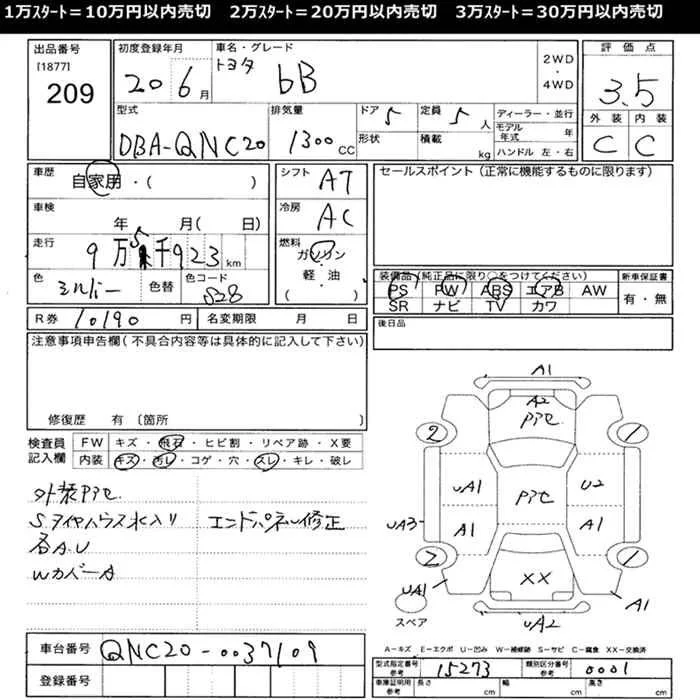 1万ｽﾀｰﾄ＝10万円以内売切　2万ｽﾀｰﾄ＝20万円以内売切　3万ｽﾀｰﾄ＝30万円以内売切
出品番号
[1877]
209
初度登録年月
20 6月
車名・グレード
トヨタ bB
2WD
・
4WD
評価点
3.5
外装 内装
C C
型式
DBA-QNC20
排気量
1300cc
ドア 5
形状
定員 5人
積載 kg
ディーラー・並行
モデル年式 年
ハンドル 左・右
車歴
自家用・( )
シフト AT
セールスポイント（正常に機能するものに限ります）
車検
年 月( 日)
冷房 AC
走行
9万5千923km
燃料
ガソリン
軽・油
( )
色
シルバー
色替
色コード
S28
装備品（純正品に限り○をつけてください）
PS PW ABS エアB AW
SR ナビ TV カワ
新車保証書
有・無
R券 10190円
名変期限 月 日
後日品
注意事項申告欄（不具合内容等は具体的に記入して下さい）
修復歴 有〔箇所 〕
検査員
記入欄
FW キズ・飛石・ヒビ割・リペア跡・X要
内装 キズ・汚レ・コゲ・穴・スレ・キレ・破レ
外装P.P.で
S.タイヤハウス水入リ
エンドパネル修正
各A.U
WカバーA
A1
A2
2
1
UA1
U2
UA3
A1
A1
2
1
XX
UA1
A1
UA2
スペア
A－キズ E－エクボ U－凹み W－補修跡 S－サビ C－腐食 XX－交換済
車台番号 QNC20-0037109
登録番号
型式指定番号
参考
15273
類別区分番号
参考
0001
車庫証明用
参考
長さ cm
幅 cm
高さ cm